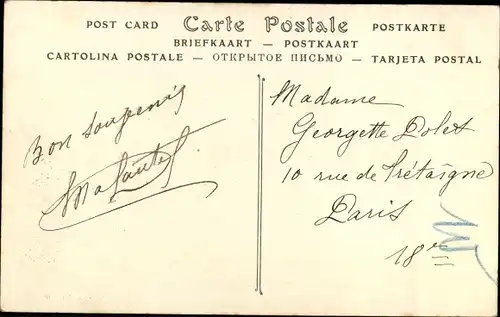 POST CARD Carte Postale POSTKARTE
BRIEFKAART — POSTKAART
CARTOLINA POSTALE — ОТКРЫТОЕ ПИСЬМО — TARJETA POSTAL
Bon
Madame
Georgette Dolet
10 rue de Trétaigne
Paris
18e